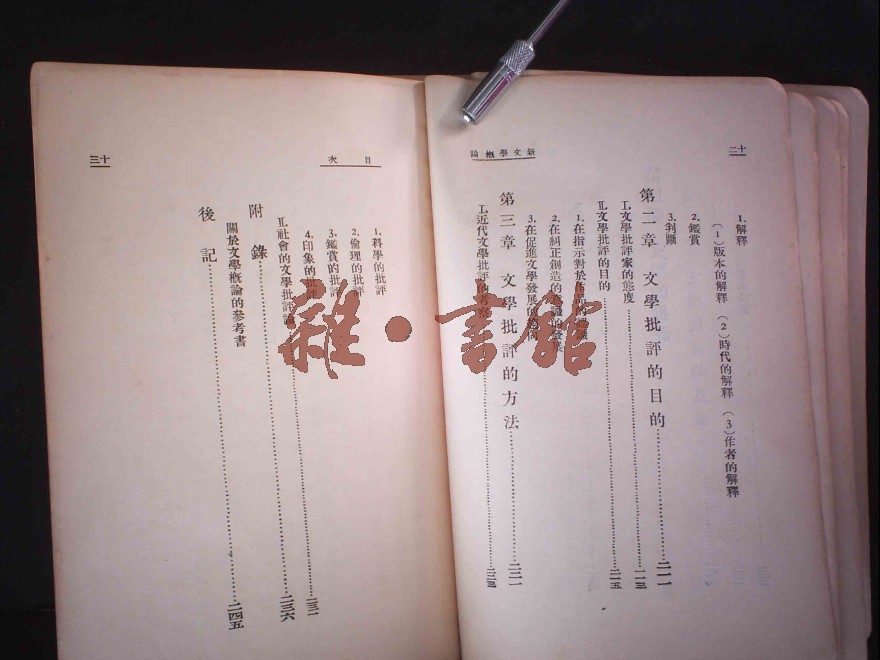 十二
新文學概論
1.解釋
(1)版本的解釋 (2)時代的解釋 (3)作者的解釋
2.鑑賞
3.判斷
第二章 文學批評的目的……二一一
I.文學批評家的態度……二一三
II.文學批評的目的……二一五
1.在指示對於作品的
2.在糾正創造的
3.在促進文學發展的
第三章 文學批評的方法……二二一
I.近代文學批評的考察……
目次
十三
1.科學的批評
2.倫理的批評
3.鑑賞的批評
4.印象的批評
II.社會的文學批評論……二三二
附錄……二三六
關於文學概論的參考書
後記……二四五
雜·書館